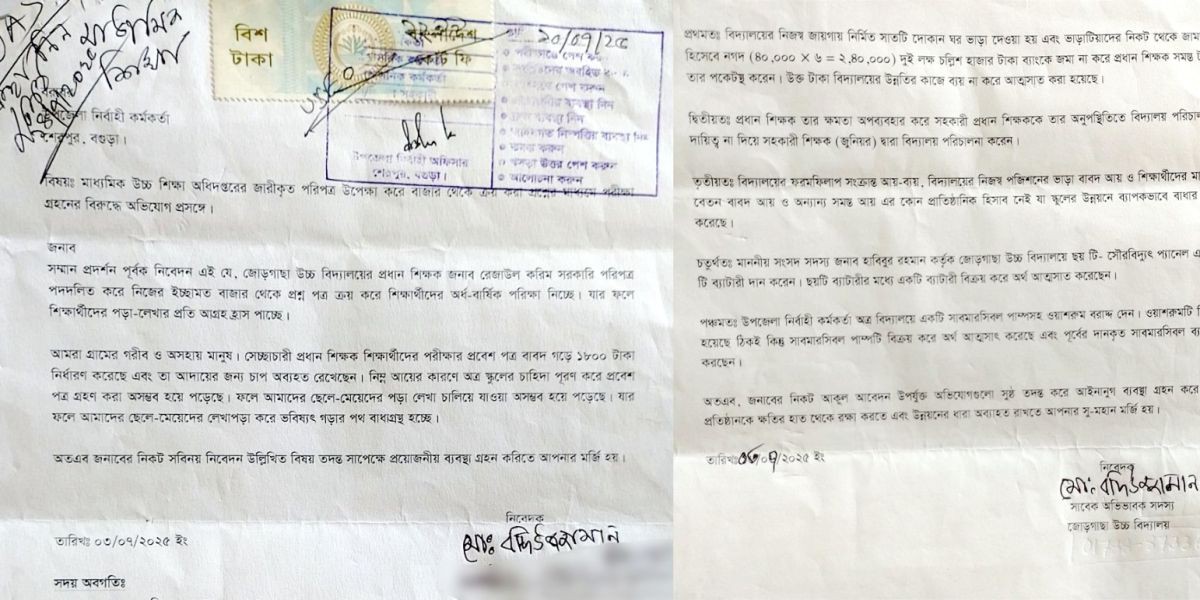 বিশ
টাকা
বাংলাদেশ
কোর্ট ফি
২০/০৭/২৫
উপজেলা নির্বাহী অফিসার
শেরপুর, বগুড়া।
উপজেলা নির্বাহী কর্মকর্তা
শেরপুর, বগুড়া।
বিষয়ঃ মাধ্যমিক উচ্চ শিক্ষা অধিদপ্তরের জারীকৃত পরিপত্র উপেক্ষা করে বাজার থেকে ক্রয় করা প্রশ্নের মাধ্যমে পরীক্ষা
গ্রহনের বিরুদ্ধে অভিযোগ প্রসঙ্গে।
জনাব
সম্মান প্রদর্শন পূর্বক নিবেদন এই যে, জোড়গাছা উচ্চ বিদ্যালয়ের প্রধান শিক্ষক জনাব রেজাউল করিম সরকারি পরিপত্র
পদদলিত করে নিজের ইচ্ছামত বাজার থেকে প্রশ্ন পত্র ক্রয় করে শিক্ষার্থীদের অর্ধ-বার্ষিক পরিক্ষা নিচ্ছে। যার ফলে
শিক্ষার্থীদের পড়া-লেখার প্রতি আগ্রহ হ্রাস পাচ্ছে।
আমরা গ্রামের গরীব ও অসহায় মানুষ। সেচ্ছাচারী প্রধান শিক্ষক শিক্ষার্থীদের পরীক্ষার প্রবেশ পত্র বাবদ গড়ে ১৮০০ টাকা
নির্ধারণ করেছে এবং তা আদায়ের জন্য চাপ অব্যহত রেখেছেন। নিম্ন আয়ের কারণে অত্র স্কুলের চাহিদা পূরণ করে প্রবেশ
পত্র গ্রহণ করা অসম্ভব হয়ে পড়েছে। ফলে আমাদের ছেলে-মেয়েদের পড়া লেখা চালিয়ে যাওয়া অসম্ভব হয়ে পড়েছে। যার
ফলে আমাদের ছেলে-মেয়েদের লেখাপড়া করে ভবিষ্যৎ গড়ার পথ বাধাগ্রস্থ হচ্ছে।
অতএব জনাবের নিকট সবিনয় নিবেদন উল্লিখিত বিষয় তদন্ত সাপেক্ষে প্রয়োজনীয় ব্যবস্থা গ্রহন করিতে আপনার মর্জি হয়।
নিবেদক
মোঃ বদিউজ্জামান
তারিখঃ ০৩/০৭/২০২৫ ইং
সদয় অবগতিঃ
প্রথমতঃ বিদ্যালয়ের নিজস্ব জায়গায় নির্মিত সাতটি দোকান ঘর ভাড়া দেওয়া হয় এবং ভাড়াটিয়াদের নিকট থেকে
হিসেবে নগদ (৪০,০০০ × ৬ = ২,৪০,০০০) দুই লক্ষ চল্লিশ হাজার টাকা ব্যাংকে জমা না করে প্রধান শিক্ষক সমস্ত
তার পকেটস্থ করেন। উক্ত টাকা বিদ্যালয়ের উন্নতির কাজে ব্যয় না করে আত্মসাত করা হয়েছে।
দ্বিতীয়তঃ প্রধান শিক্ষক তার ক্ষমতা অপব্যবহার করে সহকারী প্রধান শিক্ষককে তার অনুপস্থিতিতে বিদ্যালয়
দায়িত্ব না দিয়ে সহকারী শিক্ষক (জুনিয়র) দ্বারা বিদ্যালয় পরিচালনা করেন।
তৃতীয়তঃ বিদ্যালয়ের ফরমফিলাপ সংক্রান্ত আয়-ব্যয়, বিদ্যালয়ের নিজস্ব পজিশনের ভাড়া বাবদ আয় ও শিক্ষার্থীদের
বেতন বাবদ আয় ও অন্যান্য সমস্ত আয় এর কোন প্রাতিষ্ঠানিক হিসাব নেই যা স্কুলের উন্নয়নে ব্যাপকভাবে বাধার
করেছে।
চতুর্থতঃ মাননীয় সংসদ সদস্য জনাব হাবিবুর রহমান কর্তৃক জোড়গাছা উচ্চ বিদ্যালয়ে ছয় টি- সৌরবিদ্যুৎ প্যানেল
টি ব্যাটারী দান করেন। ছয়টি ব্যাটারীর মধ্যে একটি ব্যাটারী বিক্রয় করে অর্থ আত্মসাত করেছেন।
পঞ্চমতঃ উপজেলা নির্বাহী কর্মকর্তা অত্র বিদ্যালয়ে একটি সাবমারসিবল পাম্পসহ ওয়াশরুম বরাদ্দ দেন। ওয়াশরুমটি
হয়েছে ঠিকই কিন্তু সাবমারসিবল পাম্পটি বিক্রয় করে অর্থ আত্মসাৎ করেছে এবং পূর্বের দানকৃত সাবমারসিবল
করছেন।
অতএব, জনাবের নিকট আকূল আবেদন উপর্যুক্ত অভিযোগগুলো সুষ্ঠ তদন্ত করে আইনানুগ ব্যবস্থা গ্রহন করে
প্রতিষ্ঠানকে ক্ষতির হাত থেকে রক্ষা করতে এবং উন্নয়নের ধারা অব্যাহত রাখতে আপনার সু-মহান মর্জি হয়।
তারিখঃ ০৩/০৭/২০২৫ ইং
নিবেদক
মোঃ বদিউজ্জামান
সাবেক অভিভাবক সদস্য
জোড়গাছা উচ্চ বিদ্যালয়